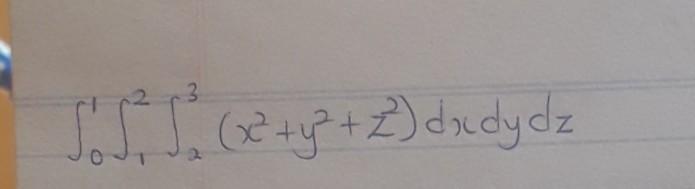 ∫₀¹ ∫₁² ∫₂³ (x²+y²+z²) dxdydz